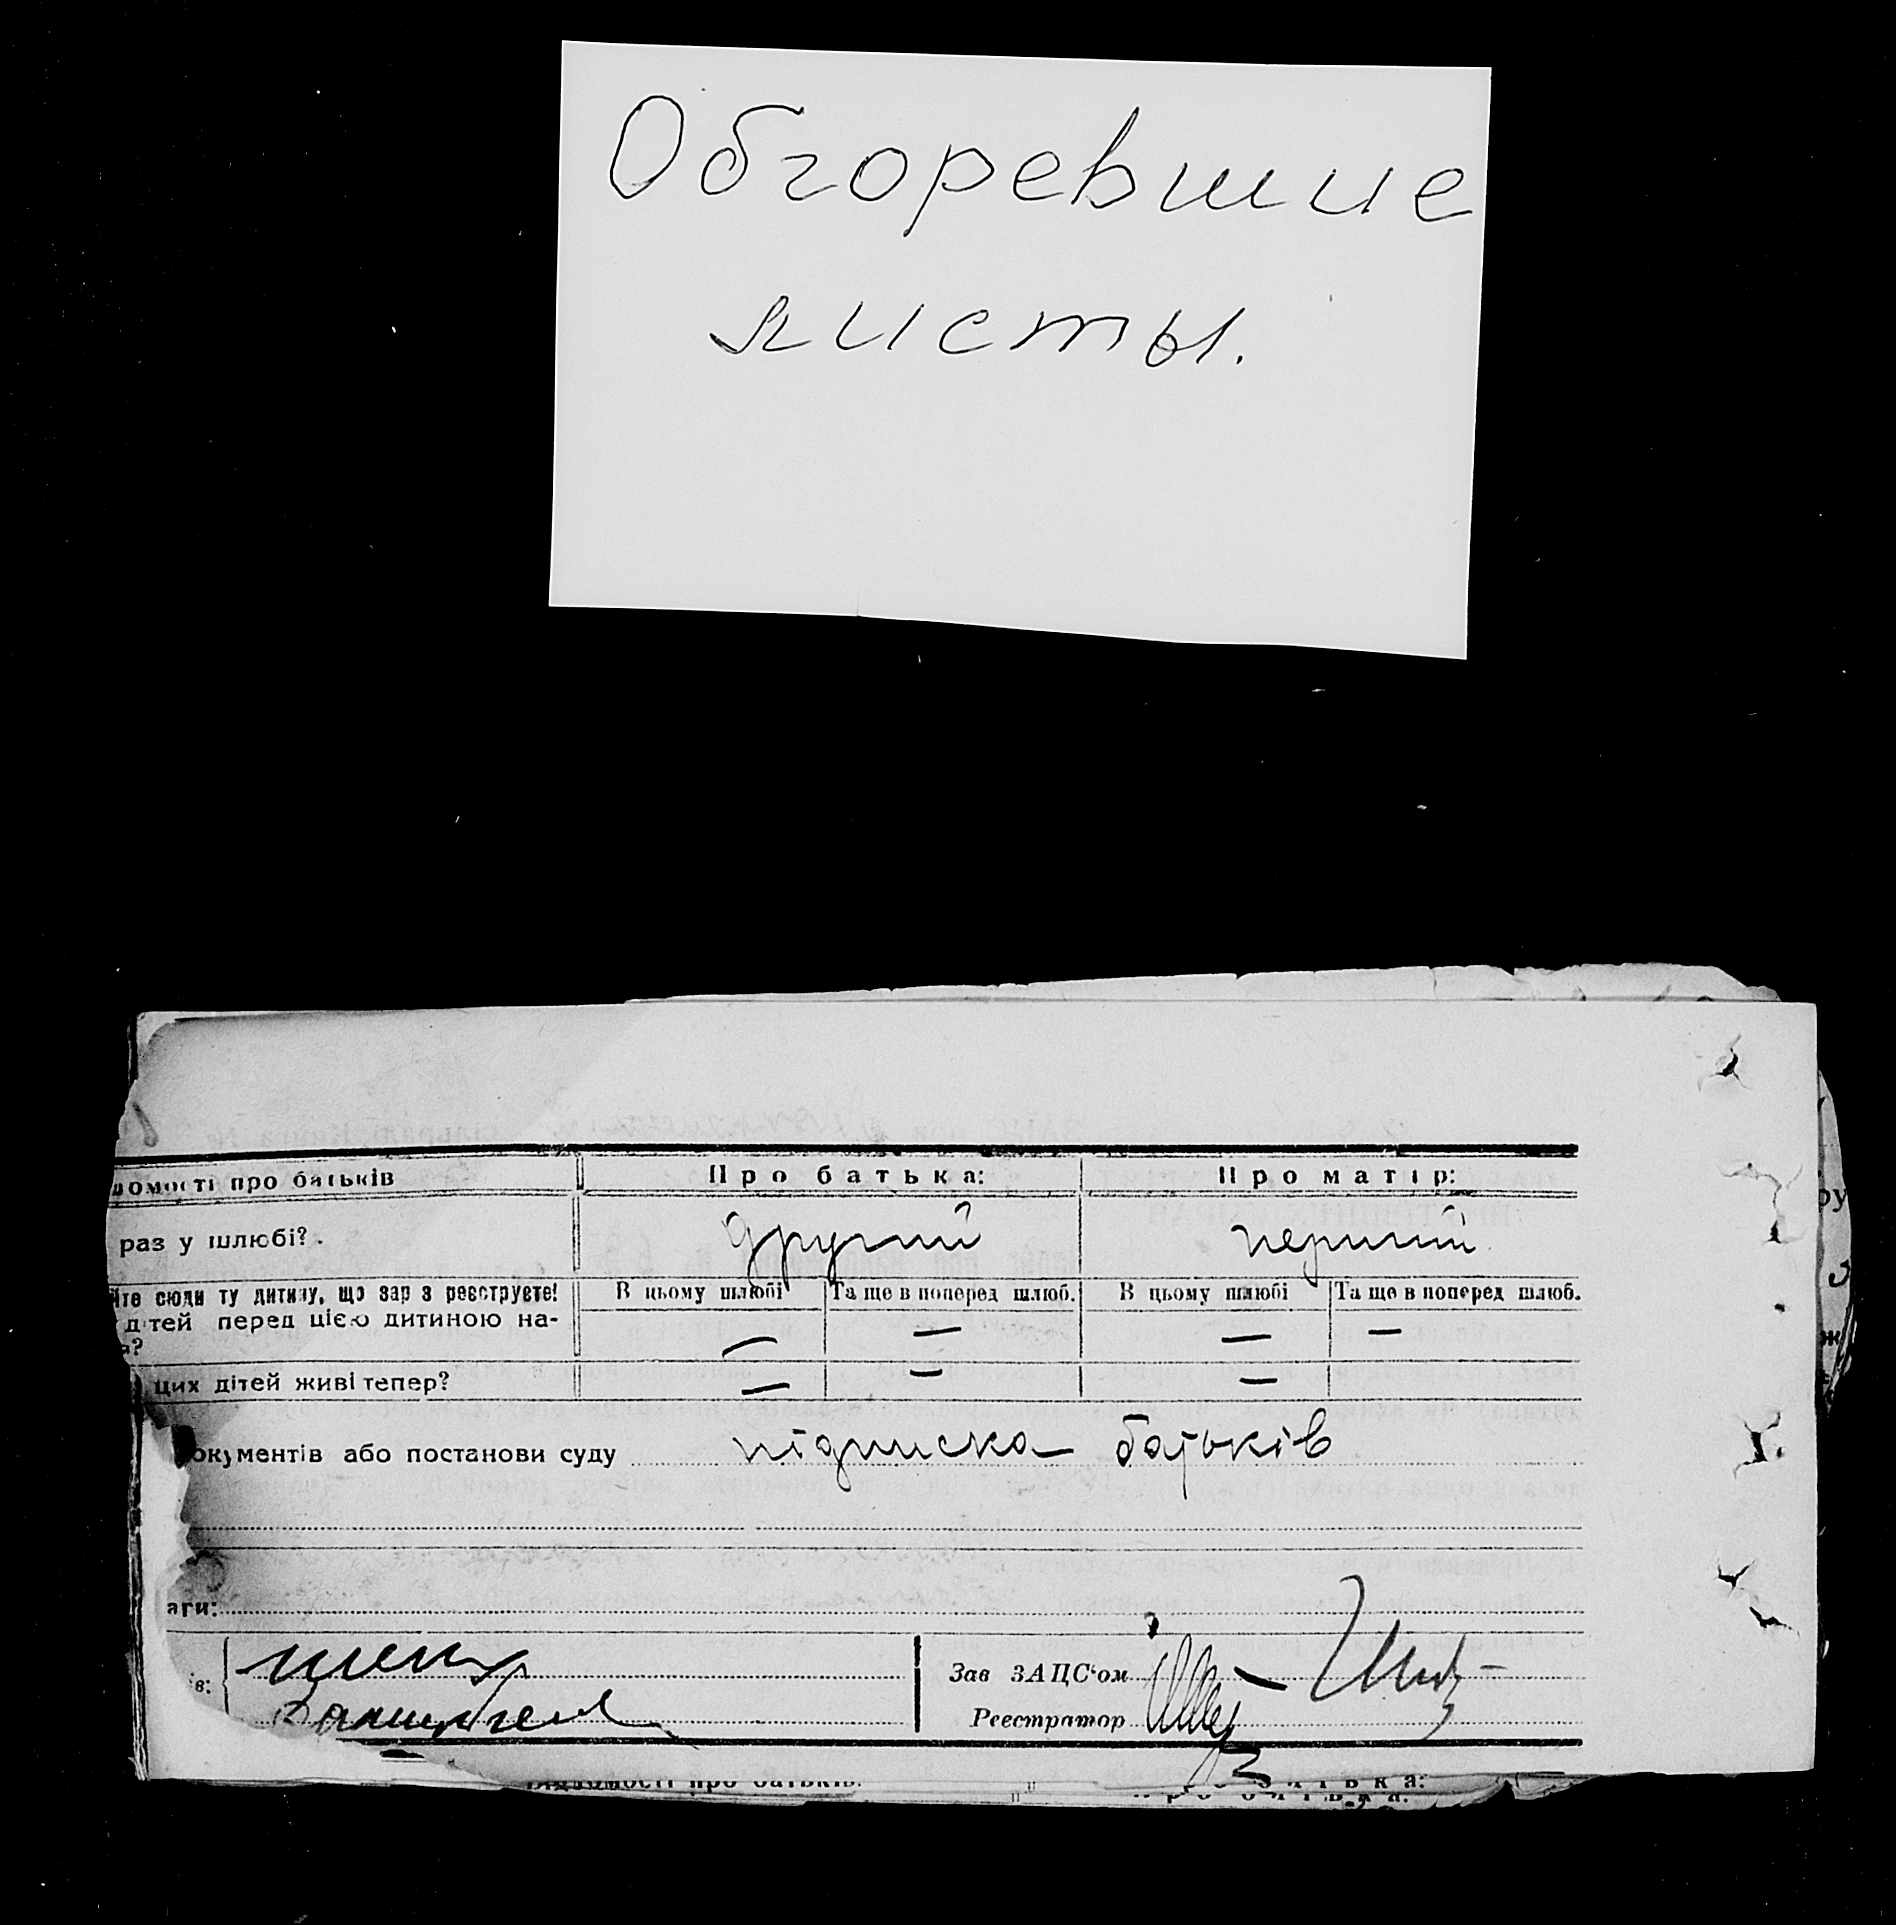 Обгоревшие
листы.
домості про батьків Про батька: Про матір:
раз у шлюбі? другий перший
йте сюди ту дитину, що зар з реєструєте! В цьому шлюбі Та ще в поперед шлюб. В цьому шлюбі Та ще в поперед шлюб.
дітей перед цією дитиною на- — — — —
а?
цих дітей живі тепер? — — —
окументів або постанови суду підписка батьків
аги:
в: Зав ЗАЦС'ом
Реєстратор
Відомості про батьків. Про батька: